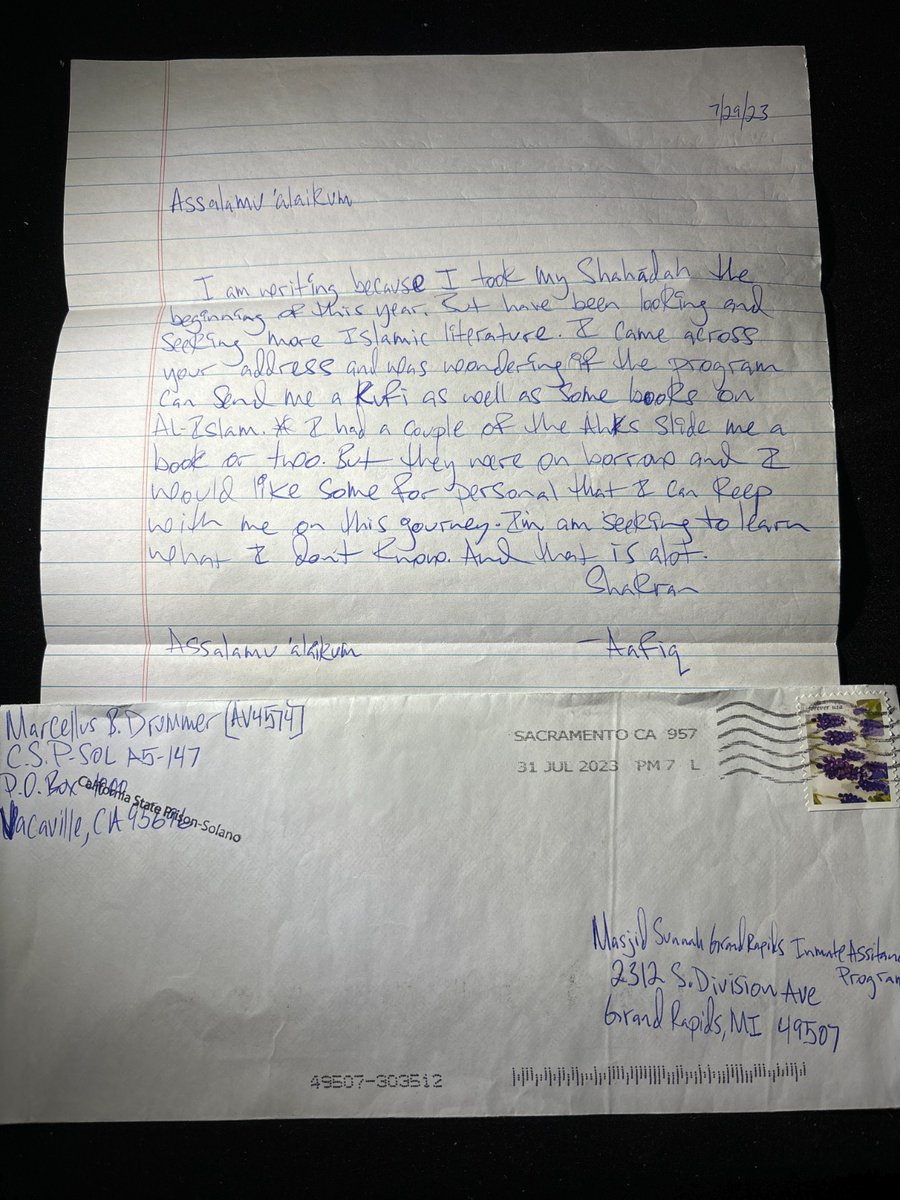 7/29/23
Assalamu 'alaikum
I am writing because I took my Shahādah the
beginning of this year. But have been looking and
seeking more Islamic literature. I came across
your address and was wondering if the program
can send me a Kufi as well as some books on
AL-Islam. * I had a couple of the Ahks slide me a
book or two. But they were on borrow and I
would like some for personal that I can keep
with me on this journey. I'm am seeking to learn
what I don't know. And that is alot.
Shakran
Assalamu 'alaikum
-Aafiq
Marcellus B. Drummer [AV4574]
C.S.P-SOL A5-147
P.O. Box 4000
Vacaville, CA 95696
California State Prison-Solano
SACRAMENTO CA 957
31 JUL 2023 PM 7 L
forever usa
Masjid Sunnah Grand Rapids Inmate Assitanc
Program
2312 S. Division Ave
Grand Rapids, MI 49507
49507-303512